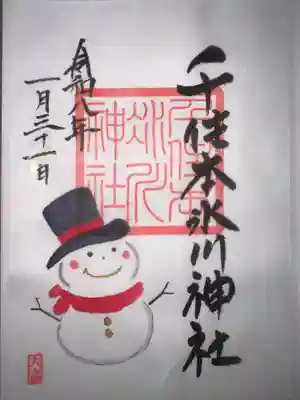 千住本氷川神社
千住本
氷川
神社
令和八年
一月三十一日